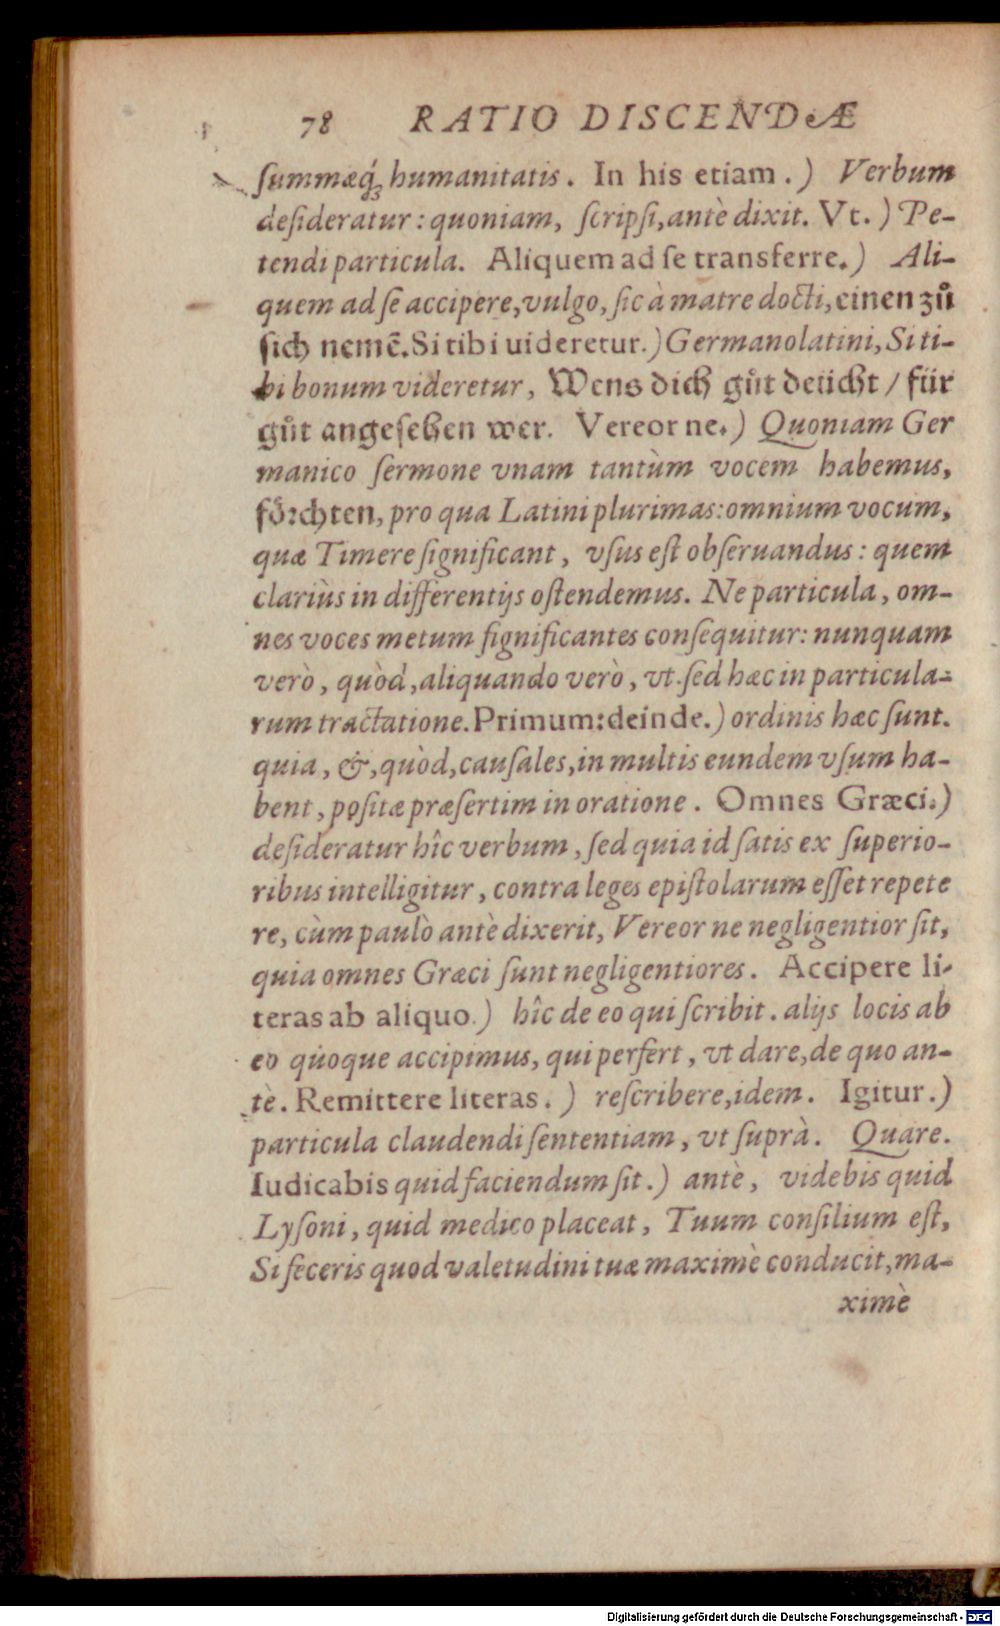 78 RATIO DISCENDÆ
ſummæq́ꝫ humanitatis. In his etiam.) Verbum
deſideratur: quoniam, ſcripſi, antè dixit. Vt.) Pe-
tendi particula. Aliquem ad ſe transferre.) Ali-
quem ad ſe accipere, vulgo, ſic à matre docti, einen zů
ſich nemē. Si tibi uideretur.) Germanolatini, Si ti-
bi bonum videretur, Wens dich gůt deücht / für
gůt angeſehen wer. Vereor ne.) Quoniam Ger
manico ſermone vnam tantùm vocem habemus,
foͤrchten, pro qua Latini plurimas: omnium vocum,
quæ Timere ſignificant, vſus eſt obſeruandus: quem
clariùs in differentijs oſtendemus. Ne particula, om-
nes voces metum ſignificantes conſequitur: nunquam
verò, quòd, aliquando verò, vt. ſed hæc in particula-
rum tractatione. Primum: deinde.) ordinis hæc ſunt.
quia, &, quòd, cauſales, in multis eundem vſum ha-
bent, poſitæ præſertim in oratione. Omnes Græci.)
deſideratur hîc verbum, ſed quia id ſatis ex ſuperio-
ribus intelligitur, contra leges epiſtolarum eſſet repete
re, cùm paulò antè dixerit, Vereor ne negligentior ſit,
quia omnes Græci ſunt negligentiores. Accipere li-
teras ab aliquo.) hîc de eo qui ſcribit. alijs locis ab
eo quoque accipimus, qui perfert, vt dare, de quo an-
tè. Remittere literas.) reſcribere, idem. Igitur.)
particula claudendi ſententiam, vt ſuprà. Quare.
Iudicabis quid faciendum ſit.) antè, videbis quid
Lyſoni, quid medico placeat, Tuum conſilium eſt,
Si feceris quod valetudini tuæ maximè conducit, ma-
ximè
Digitalisierung gefördert durch die Deutsche Forschungsgemeinschaft - DFG